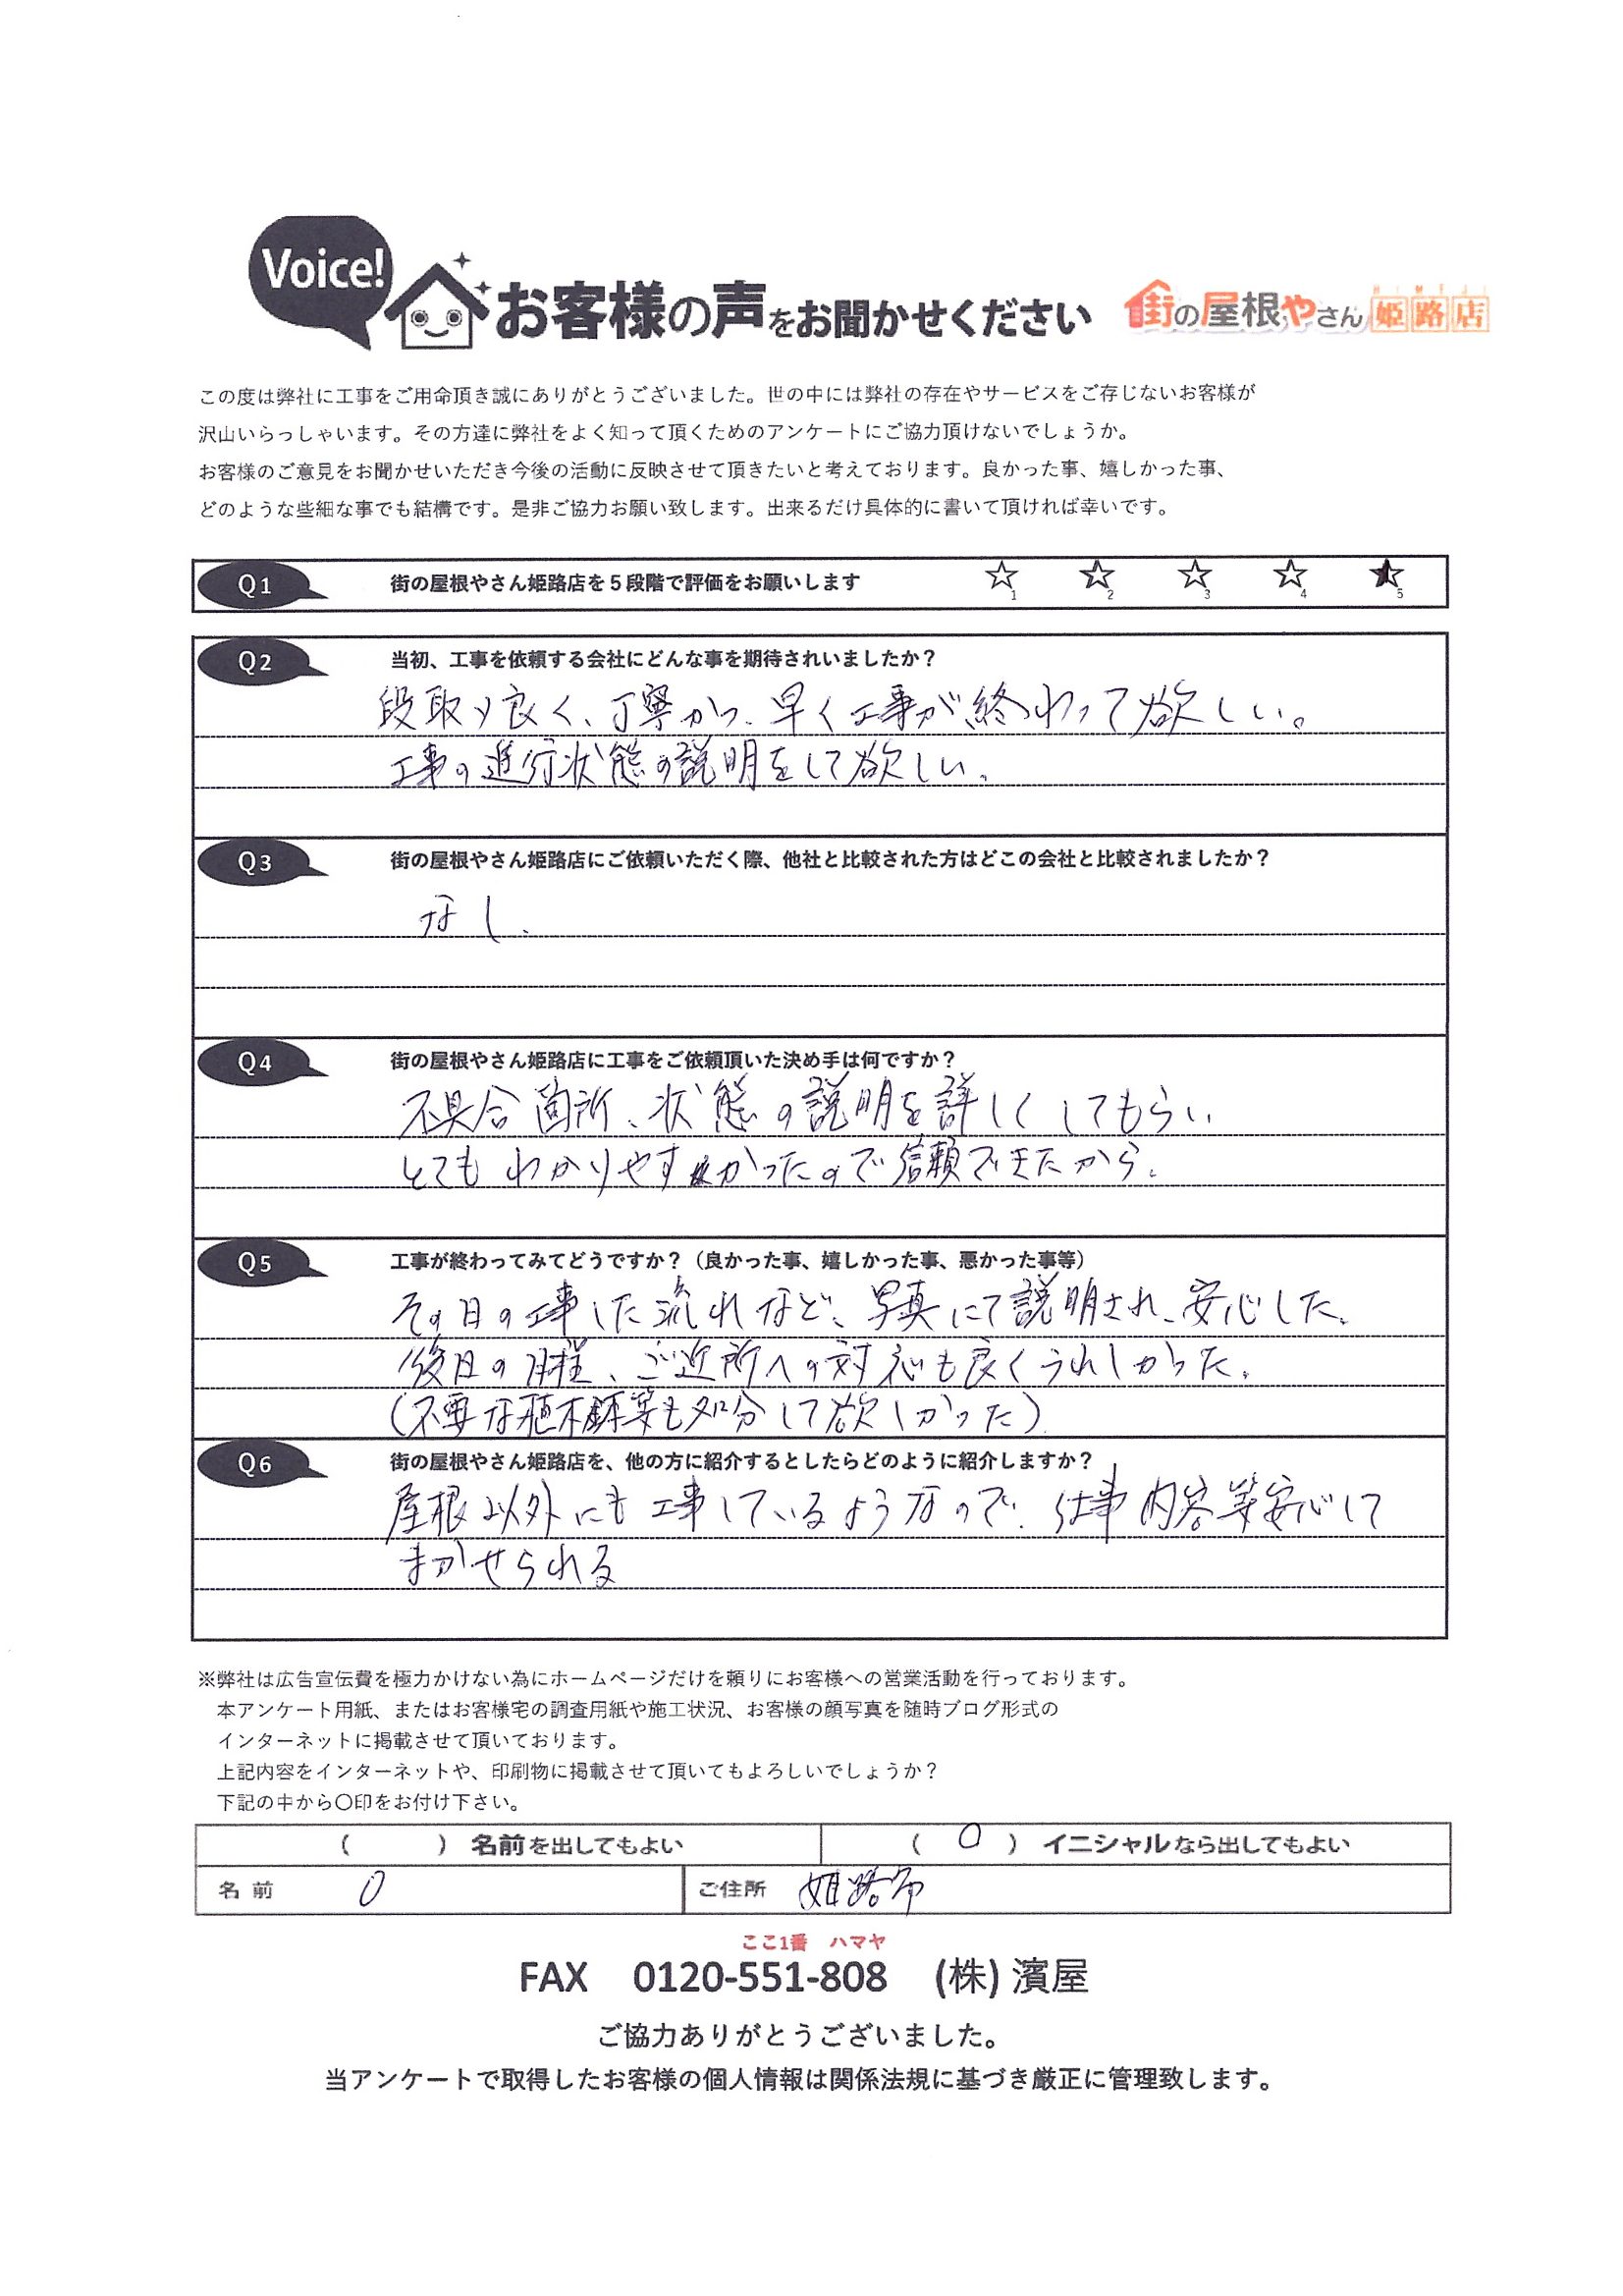 Voice!
お客様の声をお聞かせください
街の屋根やさん 姫路店
HIMEJI
この度は弊社に工事をご用命頂き誠にありがとうございました。世の中には弊社の存在やサービスをご存じないお客様が
沢山いらっしゃいます。その方達に弊社をよく知って頂くためのアンケートにご協力頂けないでしょうか。
お客様のご意見をお聞かせいただき今後の活動に反映させて頂きたいと考えております。良かった事、嬉しかった事、
どのような些細な事でも結構です。是非ご協力お願い致します。出来るだけ具体的に書いて頂ければ幸いです。
Q1 街の屋根やさん姫路店を5段階で評価をお願いします ☆1 ☆2 ☆3 ☆4 ★5
Q2 当初、工事を依頼する会社にどんな事を期待されいましたか？
段取り良く、丁寧かつ、早く工事が終わって欲しい。
工事の進行状態の説明をして欲しい。
Q3 街の屋根やさん姫路店にご依頼いただく際、他社と比較された方はどこの会社と比較されましたか？
なし。
Q4 街の屋根やさん姫路店に工事をご依頼頂いた決め手は何ですか？
不具合箇所、状態の説明を詳しくしてもらい
とてもわかりやすかったので信頼できたから。
Q5 工事が終わってみてどうですか？（良かった事、嬉しかった事、悪かった事等）
その日の工事した流れなど、写真にて説明され、安心した。
後日の、ご近所への対応も良くうれしかった。
（不要な植木等も処分して欲しかった）
Q6 街の屋根やさん姫路店を、他の方に紹介するとしたらどのように紹介しますか？
屋根以外にも工事しているようなので、仕事内容等安心して
まかせられる
※弊社は広告宣伝費を極力かけない為にホームページだけを頼りにお客様への営業活動を行っております。
本アンケート用紙、またはお客様宅の調査用紙や施工状況、お客様の顔写真を随時ブログ形式の
インターネットに掲載させて頂いております。
上記内容をインターネットや、印刷物に掲載させて頂いてもよろしいでしょうか？
下記の中から〇印をお付け下さい。
（　　）名前を出してもよい （ 〇 ）イニシャルなら出してもよい
名前 O ご住所 姫路市
ここ1番 ハマヤ
FAX 0120-551-808 (株) 濱屋
ご協力ありがとうございました。
当アンケートで取得したお客様の個人情報は関係法規に基づき厳正に管理致します。